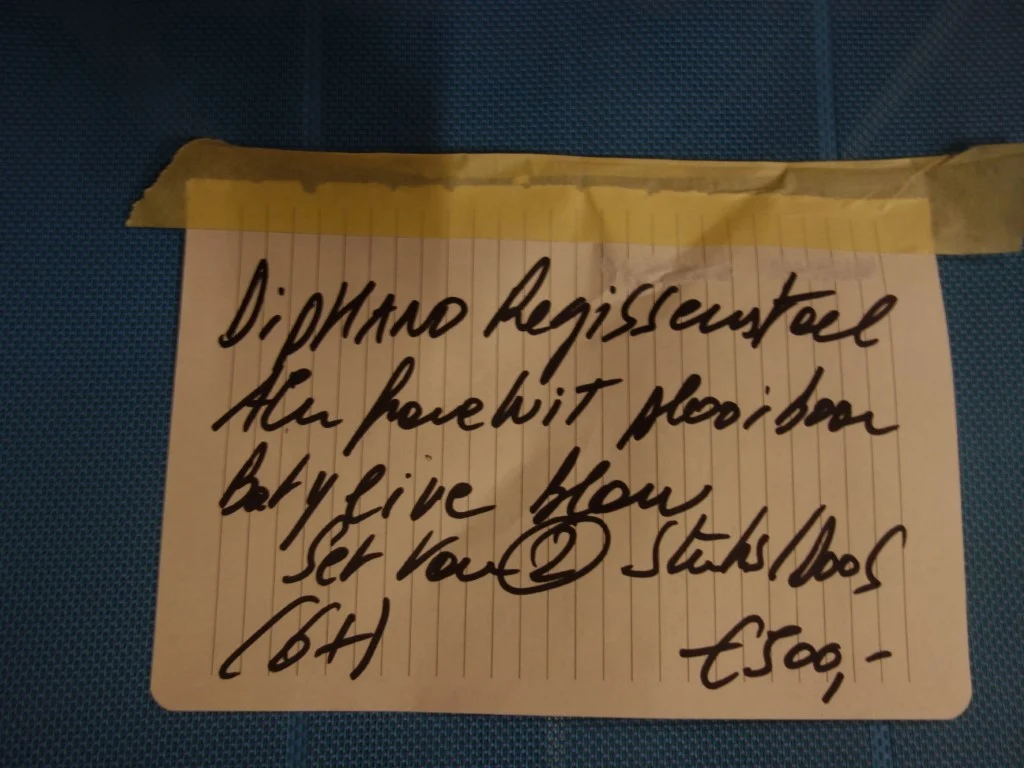 DiPHANO Regisseustoel
Alu frame wit plooibaar
Batyline blauw
Set van 2 Stuks/Doos
(6+)
€500,-